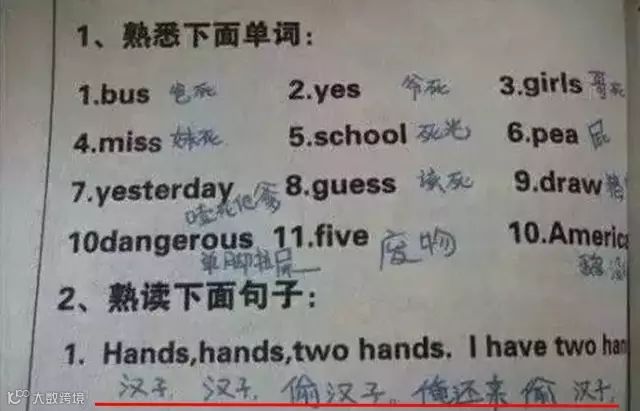 1、熟悉下面单词：
1.bus 爸死 2.yes 爷死 3.girls 哥死
4.miss 妹死 5.school 死光 6.pea 屁
7.yesterday 8.guess 该死 9.draw
哇死他爹
10dangerous 11.five 废物 10.America
单脚拉屎
2、熟读下面句子：
1. Hands,hands,two hands. I have two han
汉子，汉子，偷汉子。俺还来偷汉子，
大数跨境